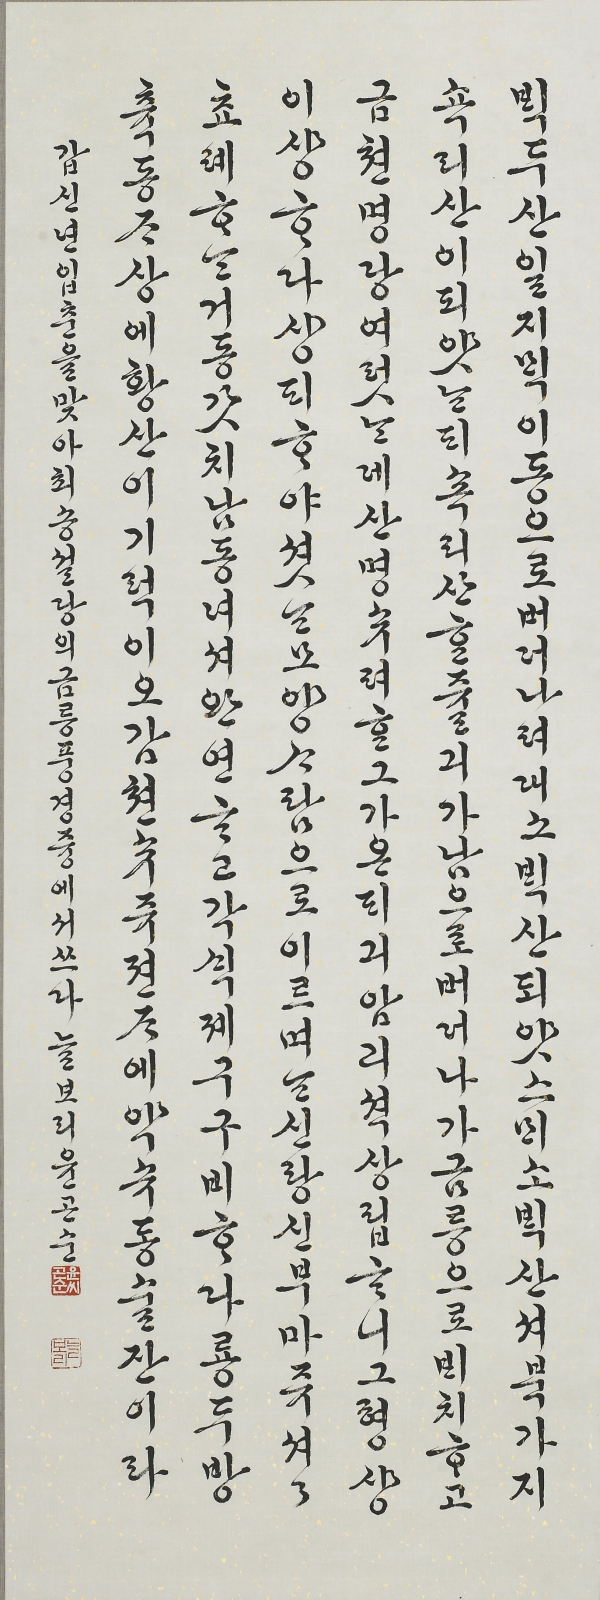 빅두산일지믹이동으로버더나려대소빅산되얏스믹소빅산셔북가지
쇽리산이되얏ᄂᆞᆫ디쇽리산ᄒᆞᆫ줄긔가남으로버더나가금릉으로비치ᄒᆞ고
금쳔명랑여럿ᄂᆞᆫ데산명슈려ᄒᆞᆫ그가온디긔암괴셕상립ᄒᆞ니그형상
이상ᄒᆞ다상디ᄒᆞ야셧ᄂᆞᆫ모양ᄉᆞ람으로이르며ᄂᆞᆫ신랑신부마쥬셔〻
쵸례ᄒᆞᄂᆞᆫ거동갓치남동녀셔완연ᄒᆞ고각식졔구구비ᄒᆞ다룡두방
츅동죠상에황산이기력이오감쳔슈쥭젼죠에약슈동술잔이라
갑신년입춘을맞아최송설당의금릉풍경중에서쓰다늘보리윤곤순